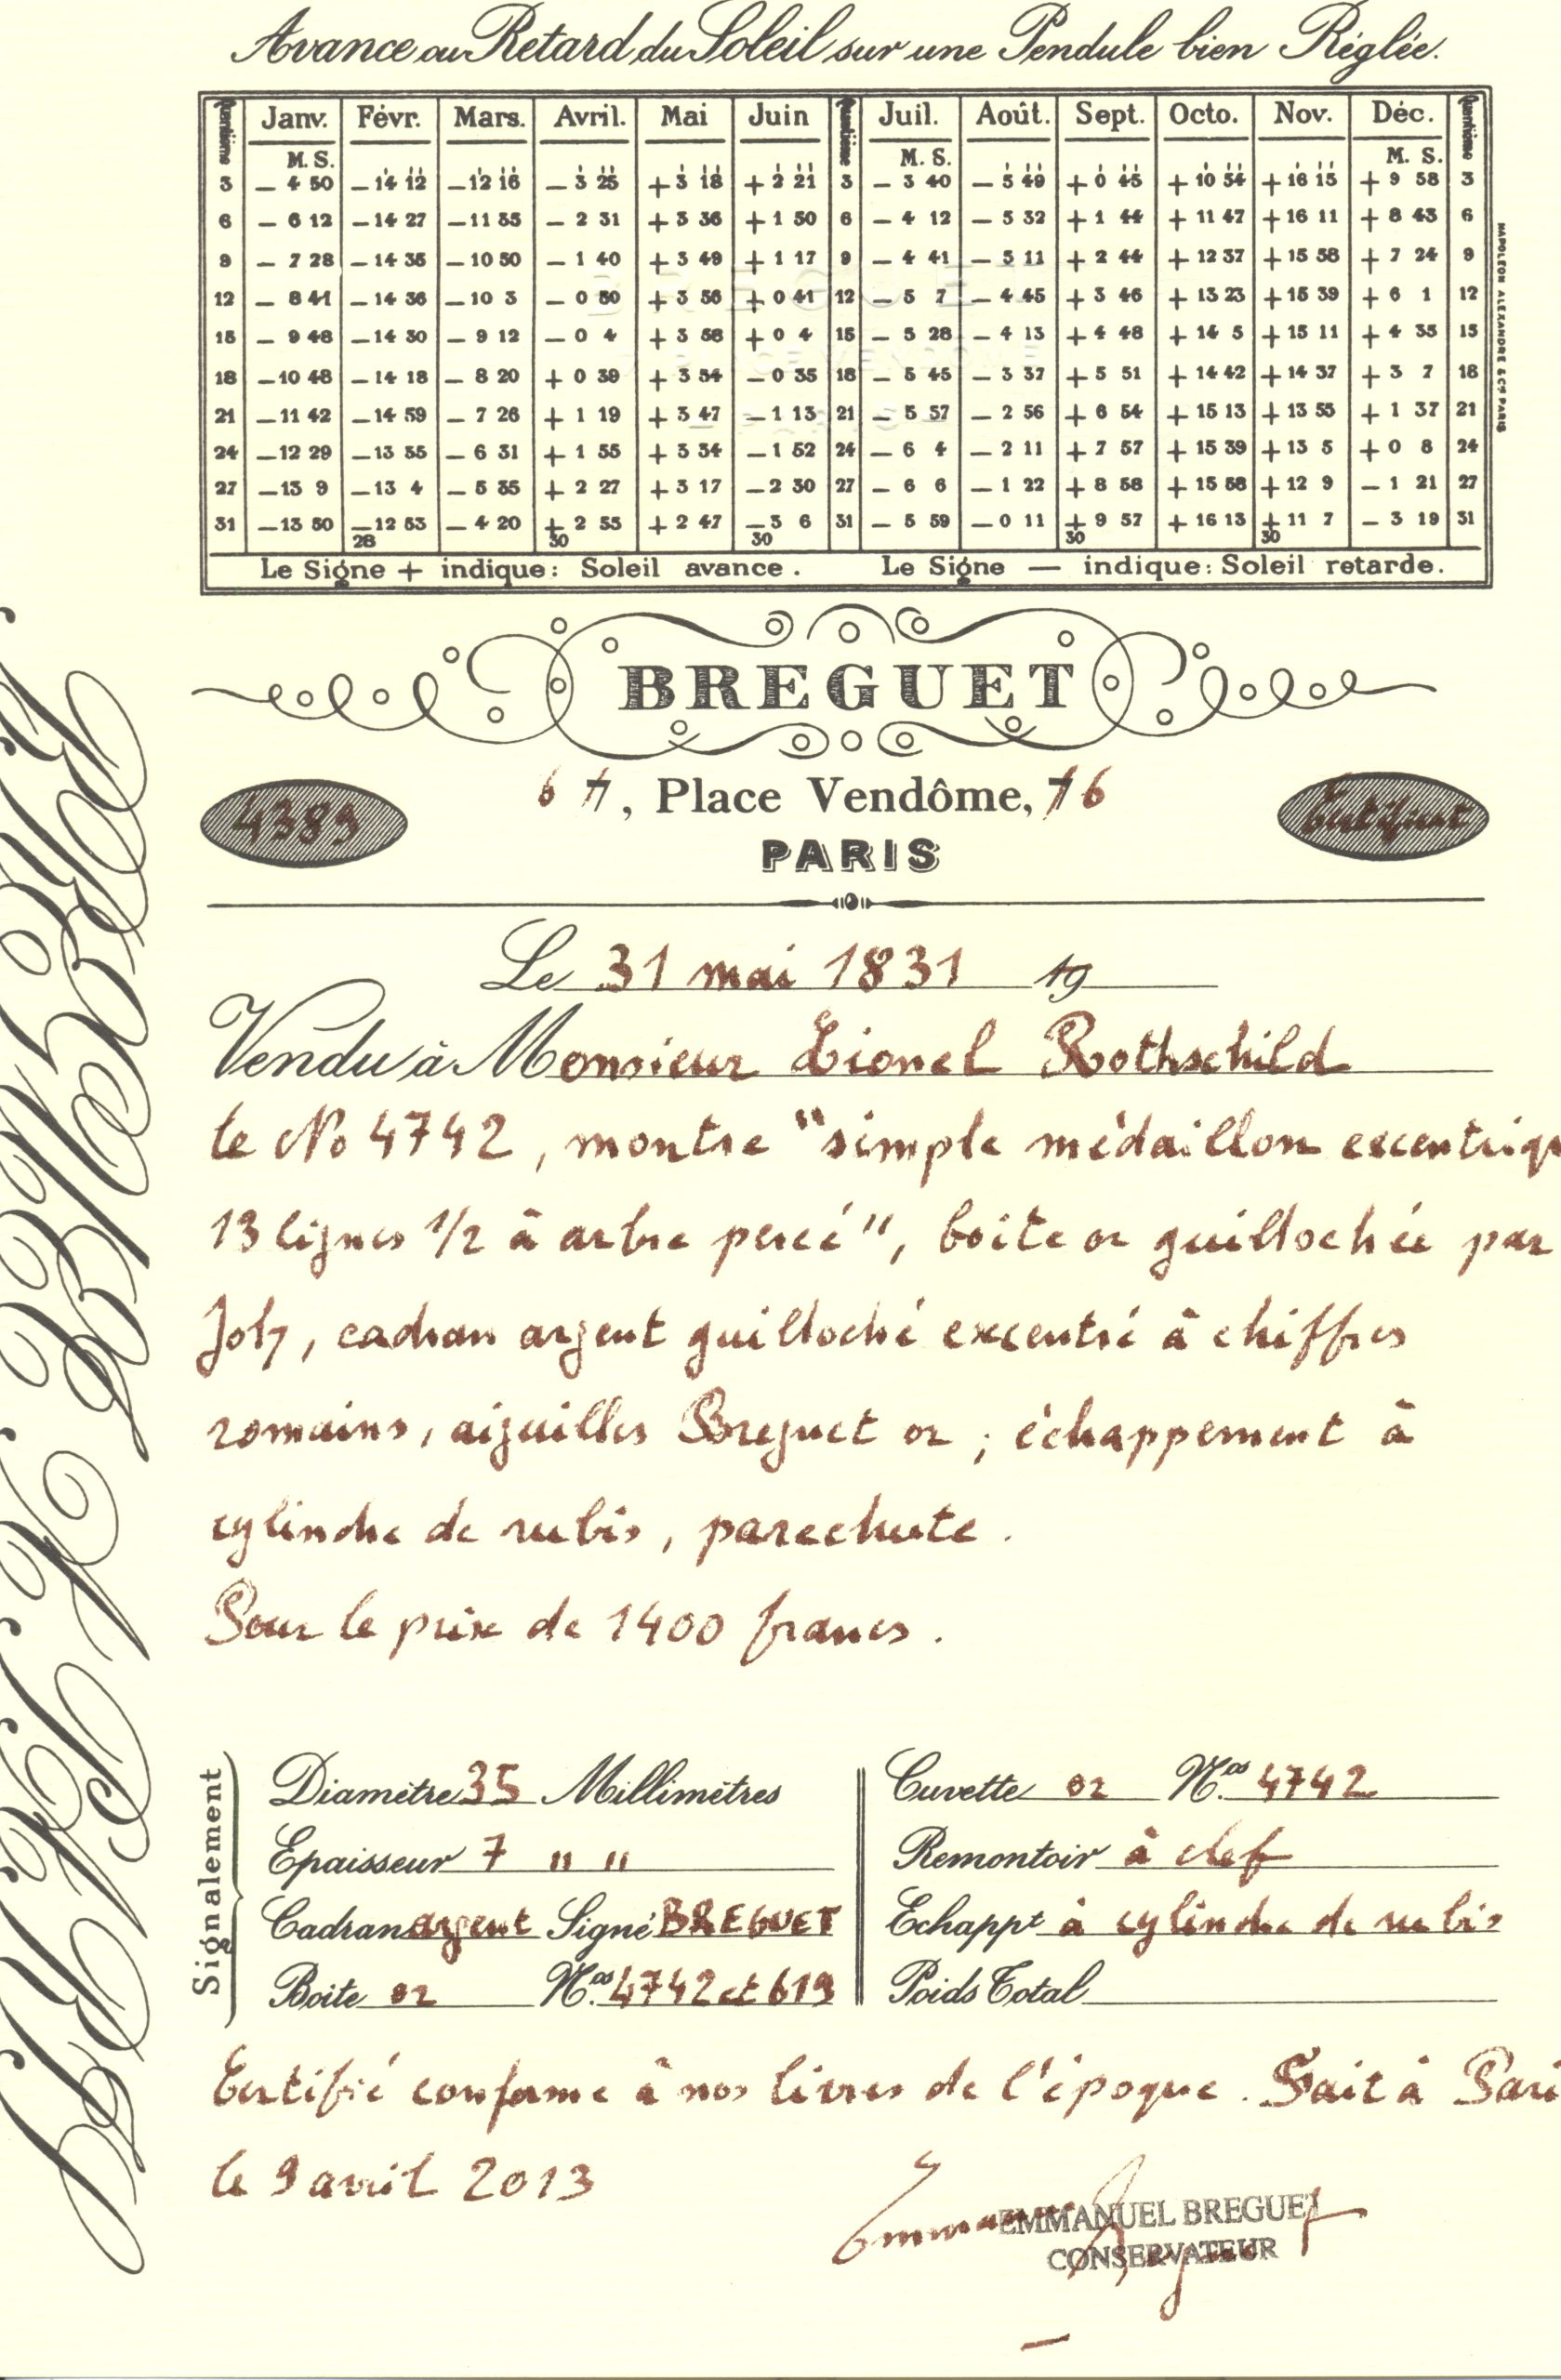 Avance ou Retard du Soleil sur une Pendule bien Réglée.
Quantième Janv. Févr. Mars. Avril. Mai Juin Quantième Juil. Août. Sept. Octo. Nov. Déc. Quantième
M. S. M. S. M. S.
3 — 4 50 — 14 12 — 12 16 — 3 25 + 3 18 + 2 21 3 — 3 40 — 5 49 + 0 45 + 10 54 + 16 15 + 9 58 3
6 — 6 12 — 14 27 — 11 35 — 2 31 + 3 36 + 1 50 6 — 4 12 — 5 32 + 1 44 + 11 47 + 16 11 + 8 43 6
9 — 7 28 — 14 35 — 10 50 — 1 40 + 3 49 + 1 17 9 — 4 41 — 5 11 + 2 44 + 12 37 + 15 58 + 7 24 9
12 — 8 41 — 14 36 — 10 3 — 0 50 + 3 56 + 0 41 12 — 5 7 — 4 45 + 3 46 + 13 23 + 15 39 + 6 1 12
15 — 9 48 — 14 30 — 9 12 — 0 4 + 3 58 + 0 4 15 — 5 28 — 4 13 + 4 48 + 14 5 + 15 11 + 4 35 15
18 — 10 48 — 14 18 — 8 20 + 0 39 + 3 54 — 0 35 18 — 5 45 — 3 37 + 5 51 + 14 42 + 14 37 + 3 7 18
21 — 11 42 — 14 59 — 7 26 + 1 19 + 3 47 — 1 13 21 — 5 57 — 2 56 + 6 54 + 15 13 + 13 55 + 1 37 21
24 — 12 29 — 13 35 — 6 31 + 1 55 + 3 34 — 1 52 24 — 6 4 — 2 11 + 7 57 + 15 39 + 13 5 + 0 8 24
27 — 13 9 — 13 4 — 5 35 + 2 27 + 3 17 — 2 30 27 — 6 6 — 1 22 + 8 58 + 15 58 + 12 9 — 1 21 27
31 — 13 50 — 12 53 — 4 20 + 2 55 + 2 47 — 3 6 31 — 5 59 — 0 11 + 9 57 + 16 13 + 11 7 — 3 19 31
28 30 30 30 30
Le Signe + indique: Soleil avance. Le Signe — indique: Soleil retarde.
NAPOLEON ALEXANDRE & Cie PARIS
BREGUET
6 7, Place Vendôme, 7 6
4389
Certificat
PARIS
Le 31 mai 1831 19
Vendu à Monsieur Lionel Rothschild
le No 4742, montre "simple médaillon excentriqu
13 lignes 1/2 à arbre percé", boîte or guillochée par
Joly, cadran argent guilloché excentré à chiffres
romains, aiguilles Breguet or ; échappement à
cylindre de rubis, parachute.
Pour le prix de 1400 francs.
Signalement
Diamètre 35 Millimètres
Epaisseur 7 " "
Cadran argent Signé BREGUET
Boite or Nos. 4742 et 619
Cuvette or Nos. 4742
Remontoir à clef
Echappt à cylindre de rubis
Poids Total
Certifié conforme à nos livres de l'époque. Fait à Pari
le 9 avril 2013
Emmanuel Breguet
EMMANUEL BREGUET
CONSERVATEUR